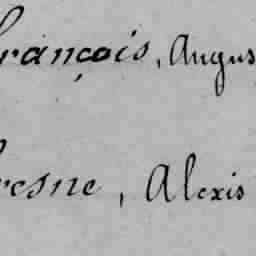 François, Augus
resne, Alexis